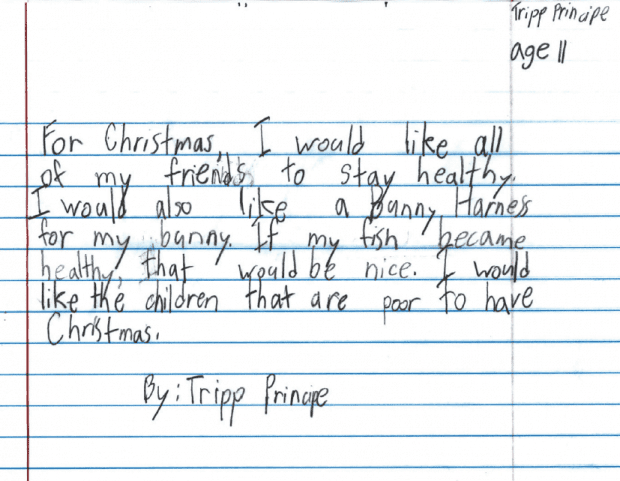 Tripp Principe
age 11
For Christmas, I would like all
of my friends to stay healthy.
I would also like a Bunny Harness
for my bunny. If my fish became
healthy, that would be nice. I would
like the children that are poor to have
Christmas.
By: Tripp Principe